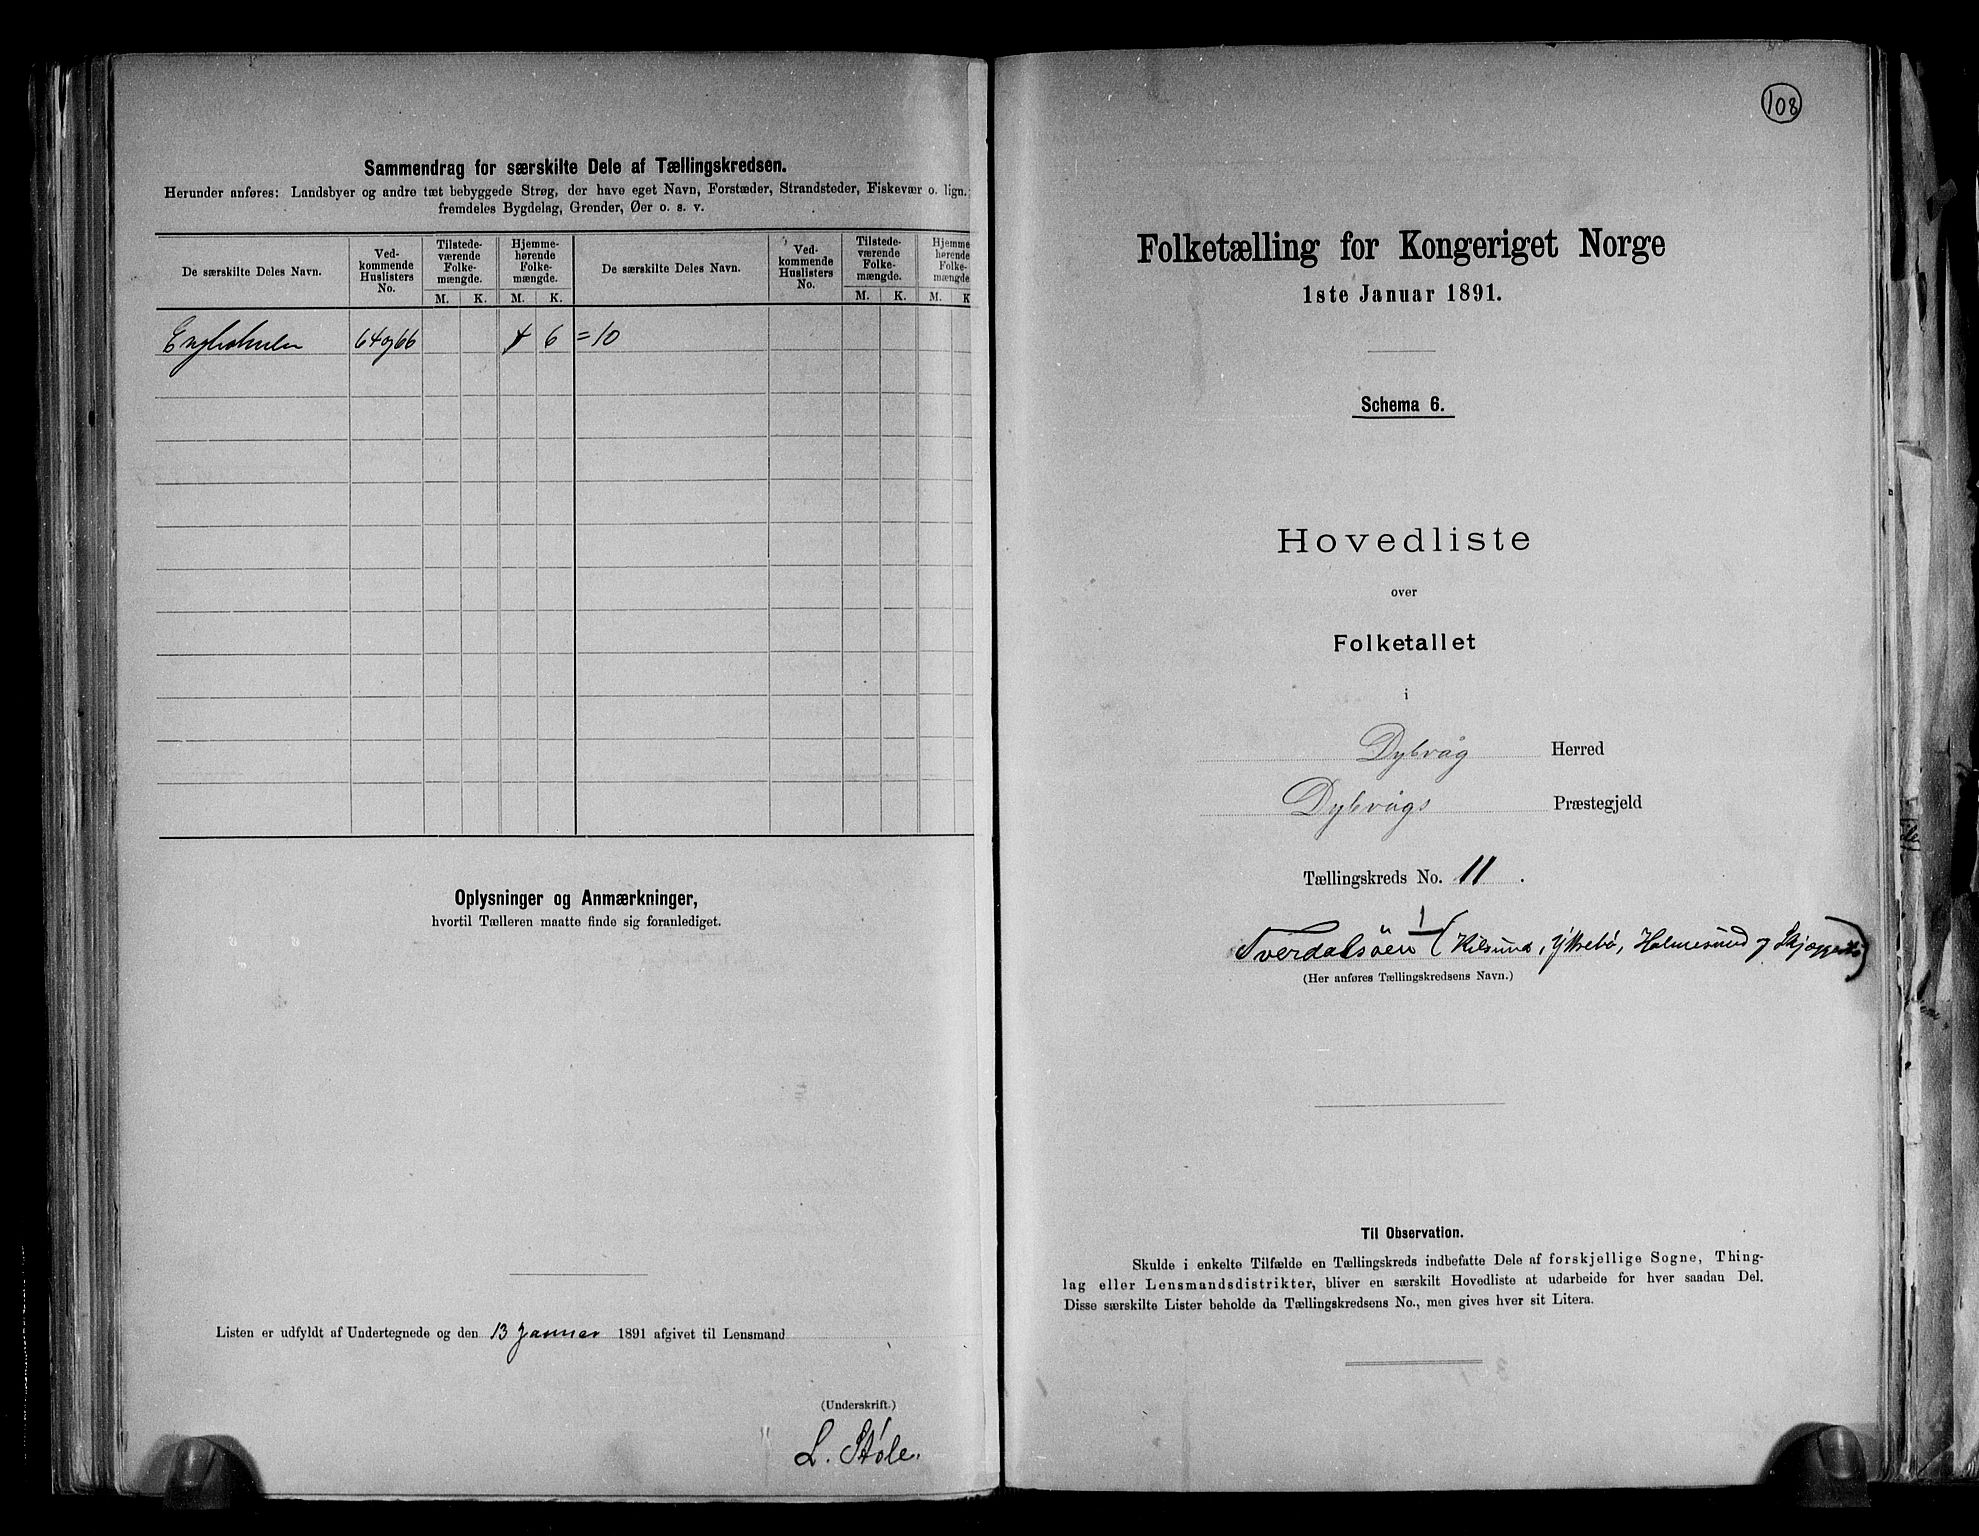 Sammendrag for særskilte Dele af Tællingskredsen.
Herunder anføres: Landsbyer og andre tæt bebyggede Strøg, der have eget Navn, Forstæder, Strandsteder, Fiskevær o. lign.;
fremdeles Bygdelag, Grender, Øer o. s. v.
De særskilte Deles Navn.
Ved-
kommende
Huslisters
No.
Tilstede-
værende
Folke-
mængde.
M. K.
Hjemme-
hørende
Folke-
mængde.
M. K.
De særskilte Deles Navn.
Ved-
kommende
Huslisters
No.
Tilstede-
værende
Folke-
mængde.
M. K.
Hjemme
hørende
Folke-
mængde
M. K
64 og 66 4 6 = 10
Oplysninger og Anmærkninger,
hvortil Tælleren maatte finde sig foranlediget.
Listen er udfyldt af Undertegnede og den 13 Januar 1891 afgivet til Lensmand
(Underskrift.)
L. Støle.
108
Folketælling for Kongeriget Norge
1ste Januar 1891.
Schema 6.
Hovedliste
over
Folketallet
i
Dybvåg Herred
Dybvågs Præstegjeld
Tællingskreds No. 11.
Tverdalsöen (Kilsund, Yttrebö, Holmesund og
(Her anføres Tællingskredsens Navn.)
Til Observation.
Skulde i enkelte Tilfælde en Tællingskreds indbefatte Dele af forskjellige Sogne, Thing-
lag eller Lensmandsdistrikter, bliver en særskilt Hovedliste at udarbeide for hver saadan Del.
Disse særskilte Lister beholde da Tællingskredsens No., men gives hver sit Litera.